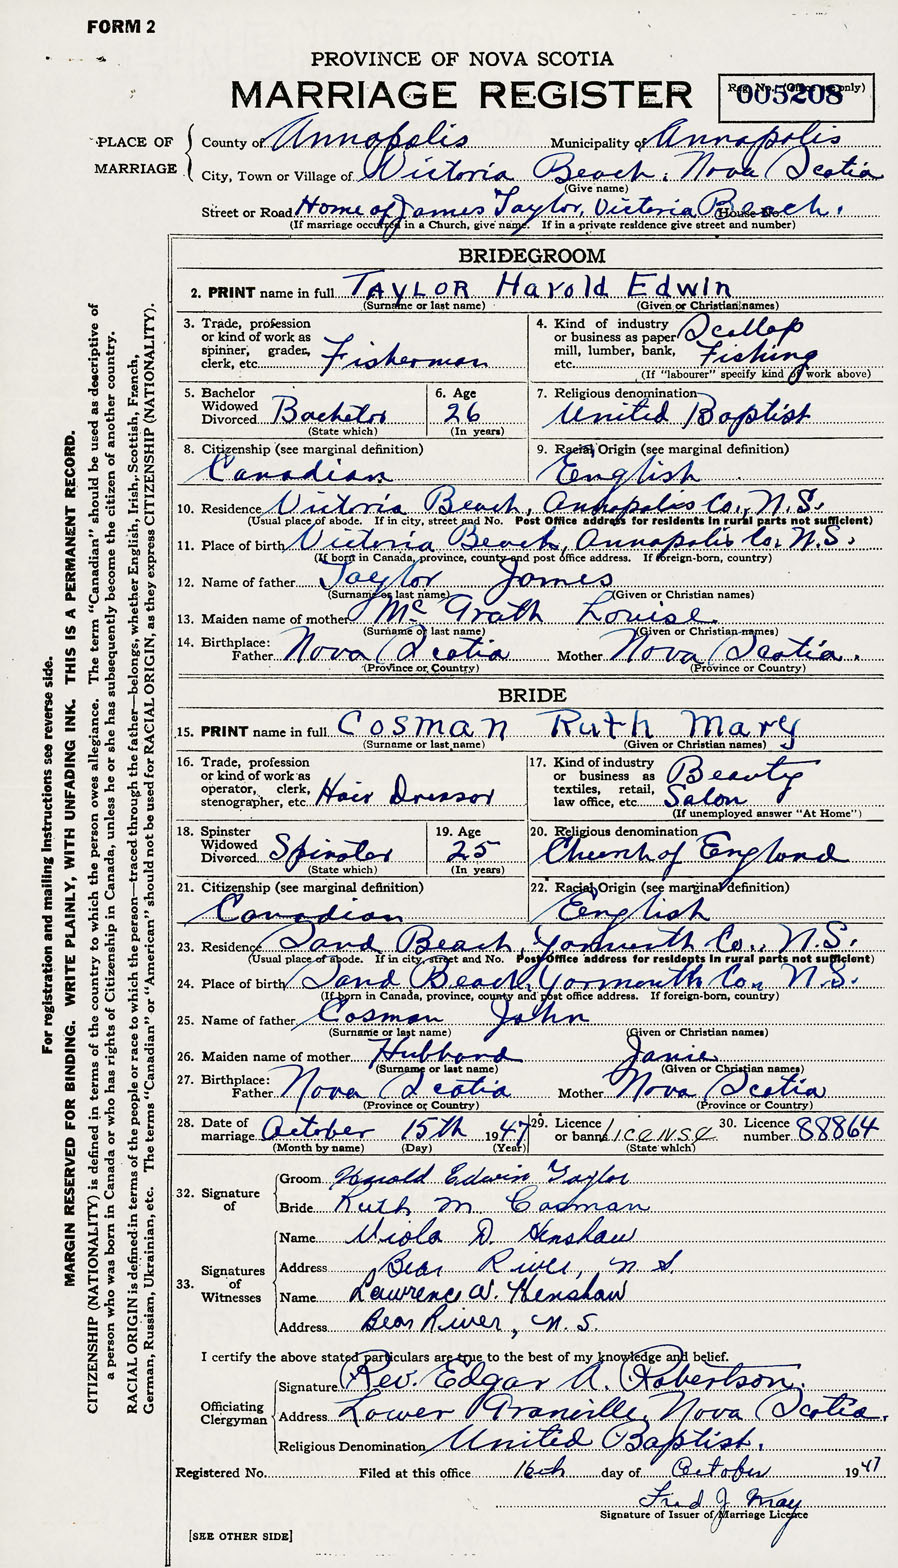 FORM 2
PROVINCE OF NOVA SCOTIA
MARRIAGE REGISTER
Reg. No. (Office use only)
005208
PLACE OF MARRIAGE
County of Annapolis Municipality of Annapolis
City, Town or Village of Victoria Beach, Nova Scotia
(Give name)
Street or Road Home of James Taylor, Victoria Beach. House No.
(If marriage occurred in a Church, give name. If in a private residence give street and number)
BRIDEGROOM
2. PRINT name in full TAYLOR Harold Edwin
(Surname or last name) (Given or Christian names)
3. Trade, profession or kind of work as spinner, grader, clerk, etc. Fisherman
4. Kind of industry or business as paper mill, lumber, bank, etc. Scallop Fishing
(If "labourer" specify kind of work above)
5. Bachelor Widowed Divorced Bachelor
(State which)
6. Age 26
(In years)
7. Religious denomination
United Baptist
8. Citizenship (see marginal definition)
Canadian
9. Racial Origin (see marginal definition)
English
10. Residence Victoria Beach, Annapolis Co., N.S.
(Usual place of abode. If in city, street and No. Post Office address for residents in rural parts not sufficient)
11. Place of birth Victoria Beach, Annapolis Co. N.S.
(If born in Canada, province, county and post office address. If foreign-born, country)
12. Name of father Taylor James
(Surname or last name) (Given or Christian names)
13. Maiden name of mother McGrath Louise
(Surname or last name) (Given or Christian names)
14. Birthplace:
Father Nova Scotia Mother Nova Scotia.
(Province or Country) (Province or Country)
BRIDE
15. PRINT name in full Cosman Ruth Mary
(Surname or last name) (Given or Christian names)
16. Trade, profession or kind of work as operator, clerk, stenographer, etc. Hair Dressor
17. Kind of industry or business as textiles, retail, law office, etc. Beauty Salon
(If unemployed answer "At Home")
18. Spinster Widowed Divorced Spinster
(State which)
19. Age 25
(In years)
20. Religious denomination
Church of England
21. Citizenship (see marginal definition)
Canadian
22. Racial Origin (see marginal definition)
English
23. Residence Sand Beach, Yarmouth Co., N.S.
(Usual place of abode. If in city, street and No. Post Office address for residents in rural parts not sufficient)
24. Place of birth Sand Beach, Yarmouth Co., N.S.
(If born in Canada, province, county and post office address. If foreign-born, country)
25. Name of father Cosman John
(Surname or last name) (Given or Christian names)
26. Maiden name of mother Hubbard Janie
(Surname or last name) (Given or Christian names)
27. Birthplace:
Father Nova Scotia Mother Nova Scotia
(Province or Country) (Province or Country)
28. Date of marriage October 15th 1947
(Month by name) (Day) (Year)
29. Licence or banns License
(State which)
30. Licence number 88864
32. Signature of
Groom Harold Edwin Taylor
Bride Ruth M. Cosman
33. Signatures of Witnesses
Name Viola D. Henshaw
Address Bear River, N S
Name Lawrence W. Henshaw
Address Bear River, N.S.
I certify the above stated particulars are true to the best of my knowledge and belief.
Officiating Clergyman
Signature Rev. Edgar A. Robertson.
Address Lower Granville, Nova Scotia.
Religious Denomination United Baptist.
Registered No. Filed at this office 16th day of October 1947
Fred J. May
Signature of Issuer of Marriage Licence
[SEE OTHER SIDE]
For registration and mailing instructions see reverse side.
MARGIN RESERVED FOR BINDING. WRITE PLAINLY, WITH UNFADING INK. THIS IS A PERMANENT RECORD.
CITIZENSHIP (NATIONALITY) is defined in terms of the country to which the person owes allegiance. The term "Canadian" should be used as descriptive of
a person who was born in Canada or who has rights of Citizenship in Canada, unless he or she has subsequently become the citizen of another country.
RACIAL ORIGIN is defined in terms of the people or race to which the person—traced through the father—belongs, whether English, Irish, Scottish, French,
German, Russian, Ukrainian, etc. The terms "Canadian" or "American" should not be used for RACIAL ORIGIN, as they express CITIZENSHIP (NATIONALITY).